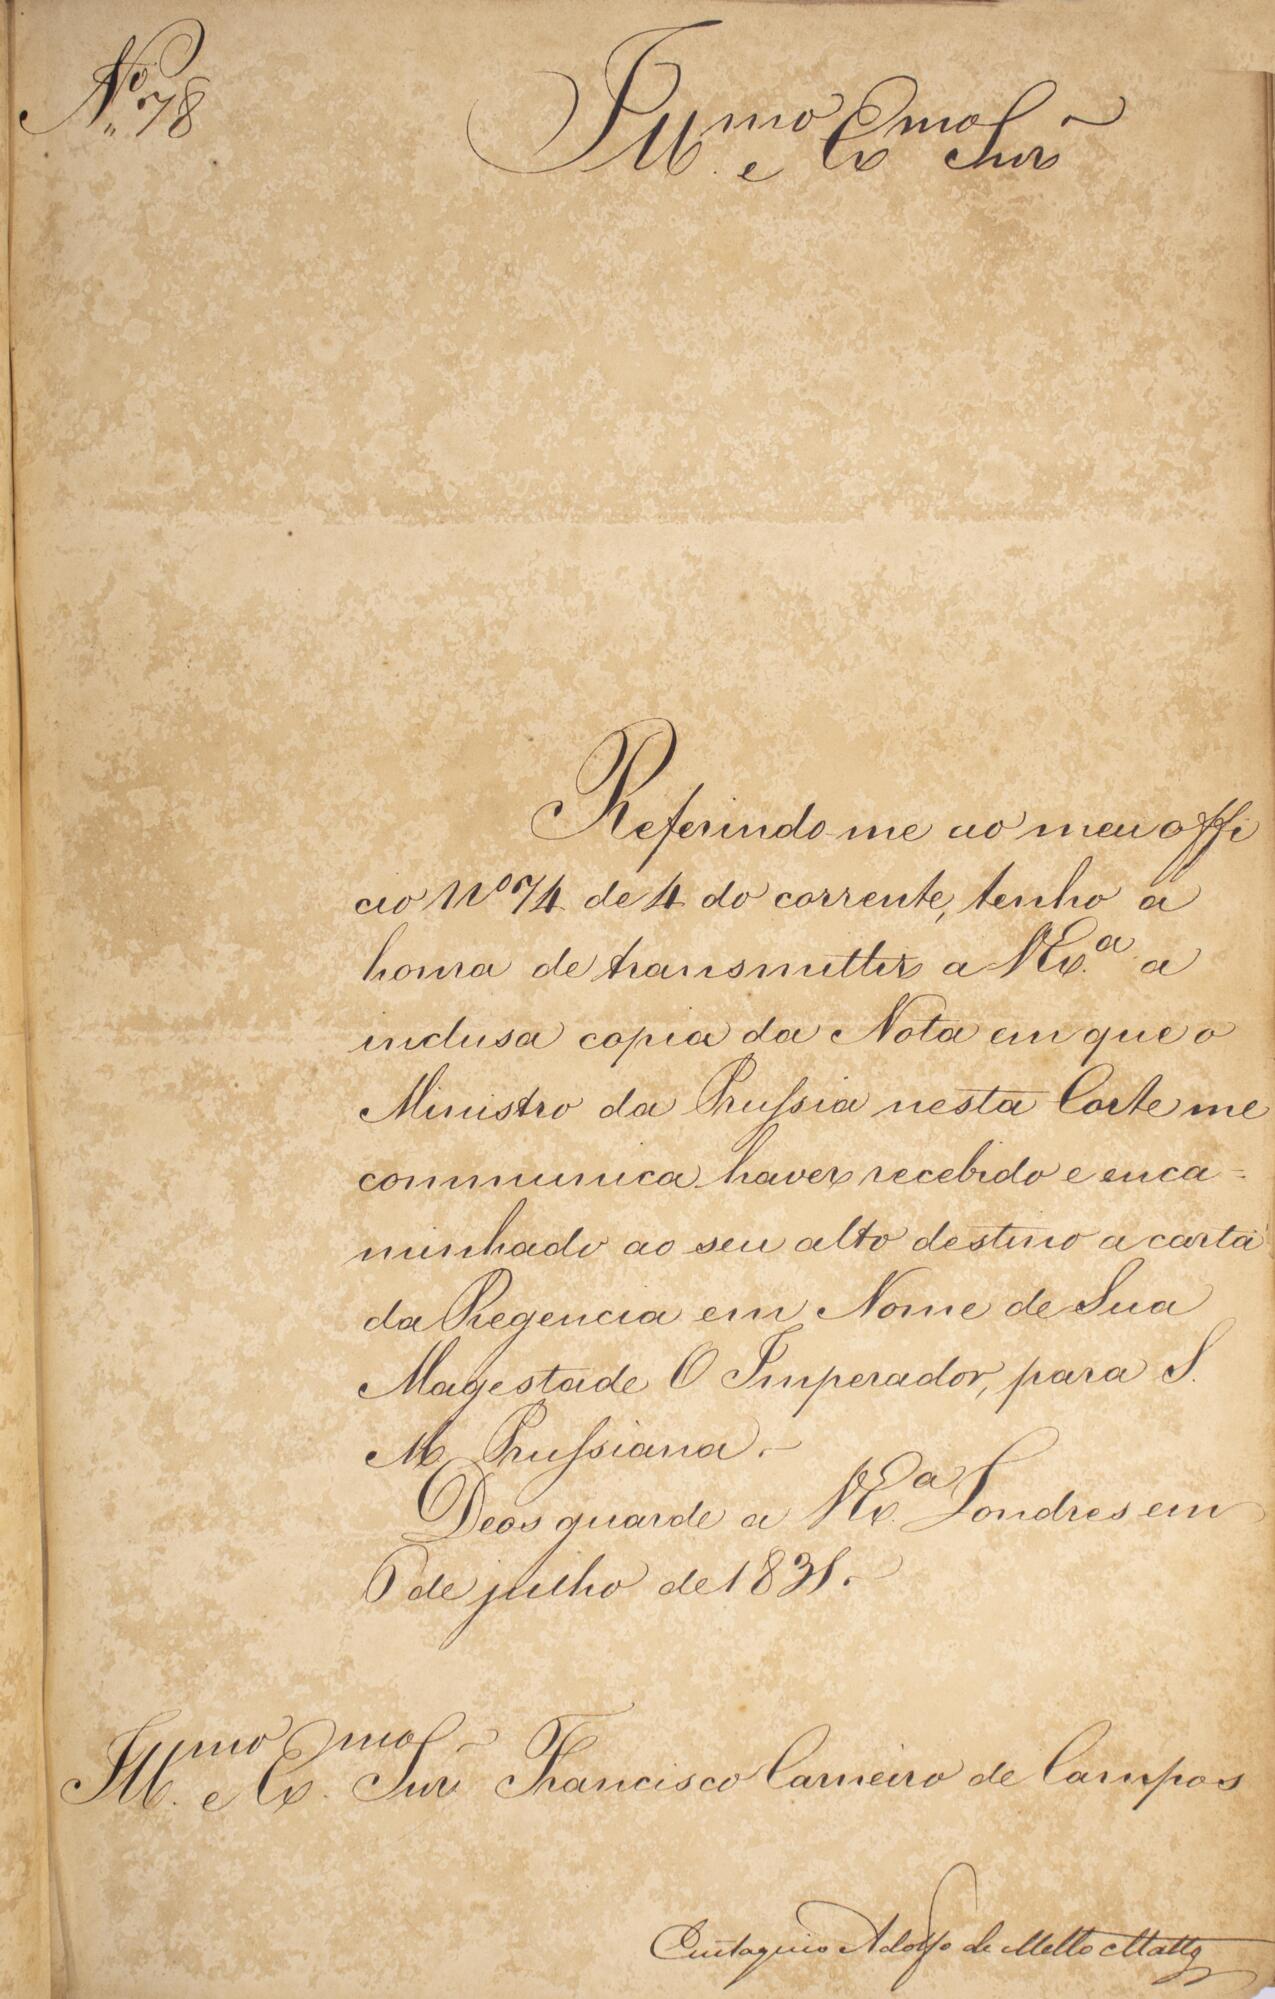 Nº 78
Illmo e Exmo Snr
Referindo-me ao meu offi
cio Nº 74 de 4 do corrente, tenho a
honra de transmittir a VExª a
inclusa copia da Nota em que o
Ministro da Prussia nesta Corte me
communica haver recebido e enca-
minhado ao seu alto destino a carta
da Regencia em Nome de Sua
Magestade O Imperador, para S.
M. Prussiana.
Deos guarde a VExª Londres em
6 de julho de 1831.
Illmo e Exmo Snr Francisco Carneiro de Campos
Eustaquio Adolfo de Mello Mattos